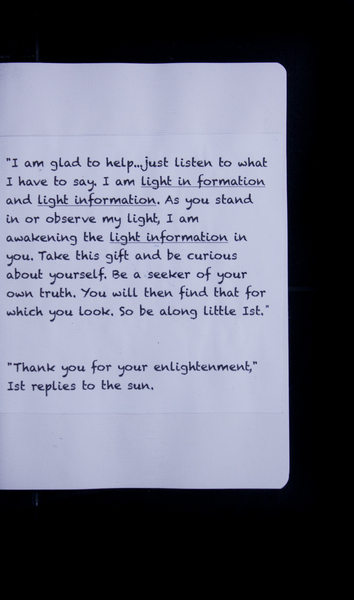 "I am glad to help...just listen to what
I have to say. I am light in formation
and light information. As you stand
in or observe my light, I am
awakening the light information in
you. Take this gift and be curious
about yourself. Be a seeker of your
own truth. You will then find that for
which you look. So be along little Ist."
"Thank you for your enlightenment,"
Ist replies to the sun.